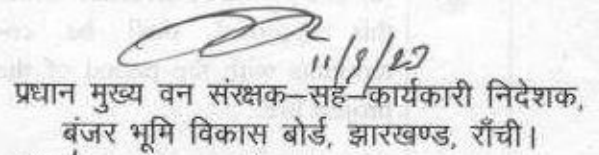 11/9/23
प्रधान मुख्य वन संरक्षक–सह–कार्यकारी निदेशक,
बंजर भूमि विकास बोर्ड, झारखण्ड, राँची।